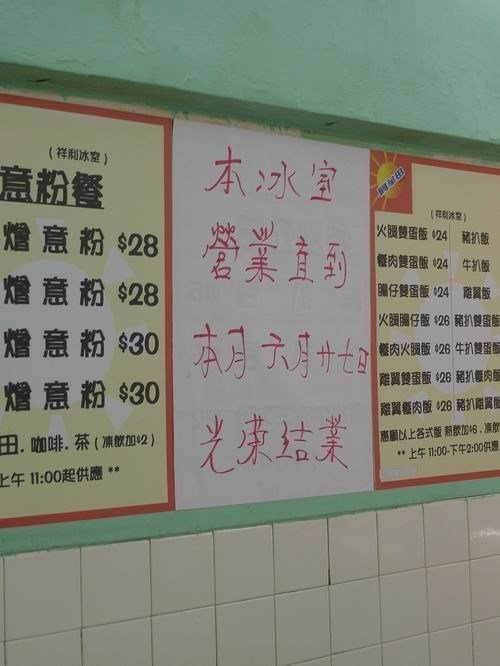 (祥利冰室)
意粉餐
燴意粉 $28
燴意粉 $28
燴意粉 $30
燴意粉 $30
田.咖啡.茶(凍飲加$2)
上午 11:00起供應 **
本冰室
營業直到
本月六月廿七日
光荣結業
阿華田
(祥利冰室)
火腿雙蛋飯 $24 豬扒飯
餐肉雙蛋飯 $24 牛扒飯
腸仔雙蛋飯 $24 雞翼飯
火腿腸仔飯 $26 豬扒雙蛋飯
餐肉火腿飯 $26 牛扒雙蛋飯
雞翼雙蛋飯 $26 豬扒餐肉飯
雞翼餐肉飯 $26 豬扒雞翼飯
惠顧以上各式飯 熱飲加$6.凍飲
** 上午 11:00-下午2:00供應 **